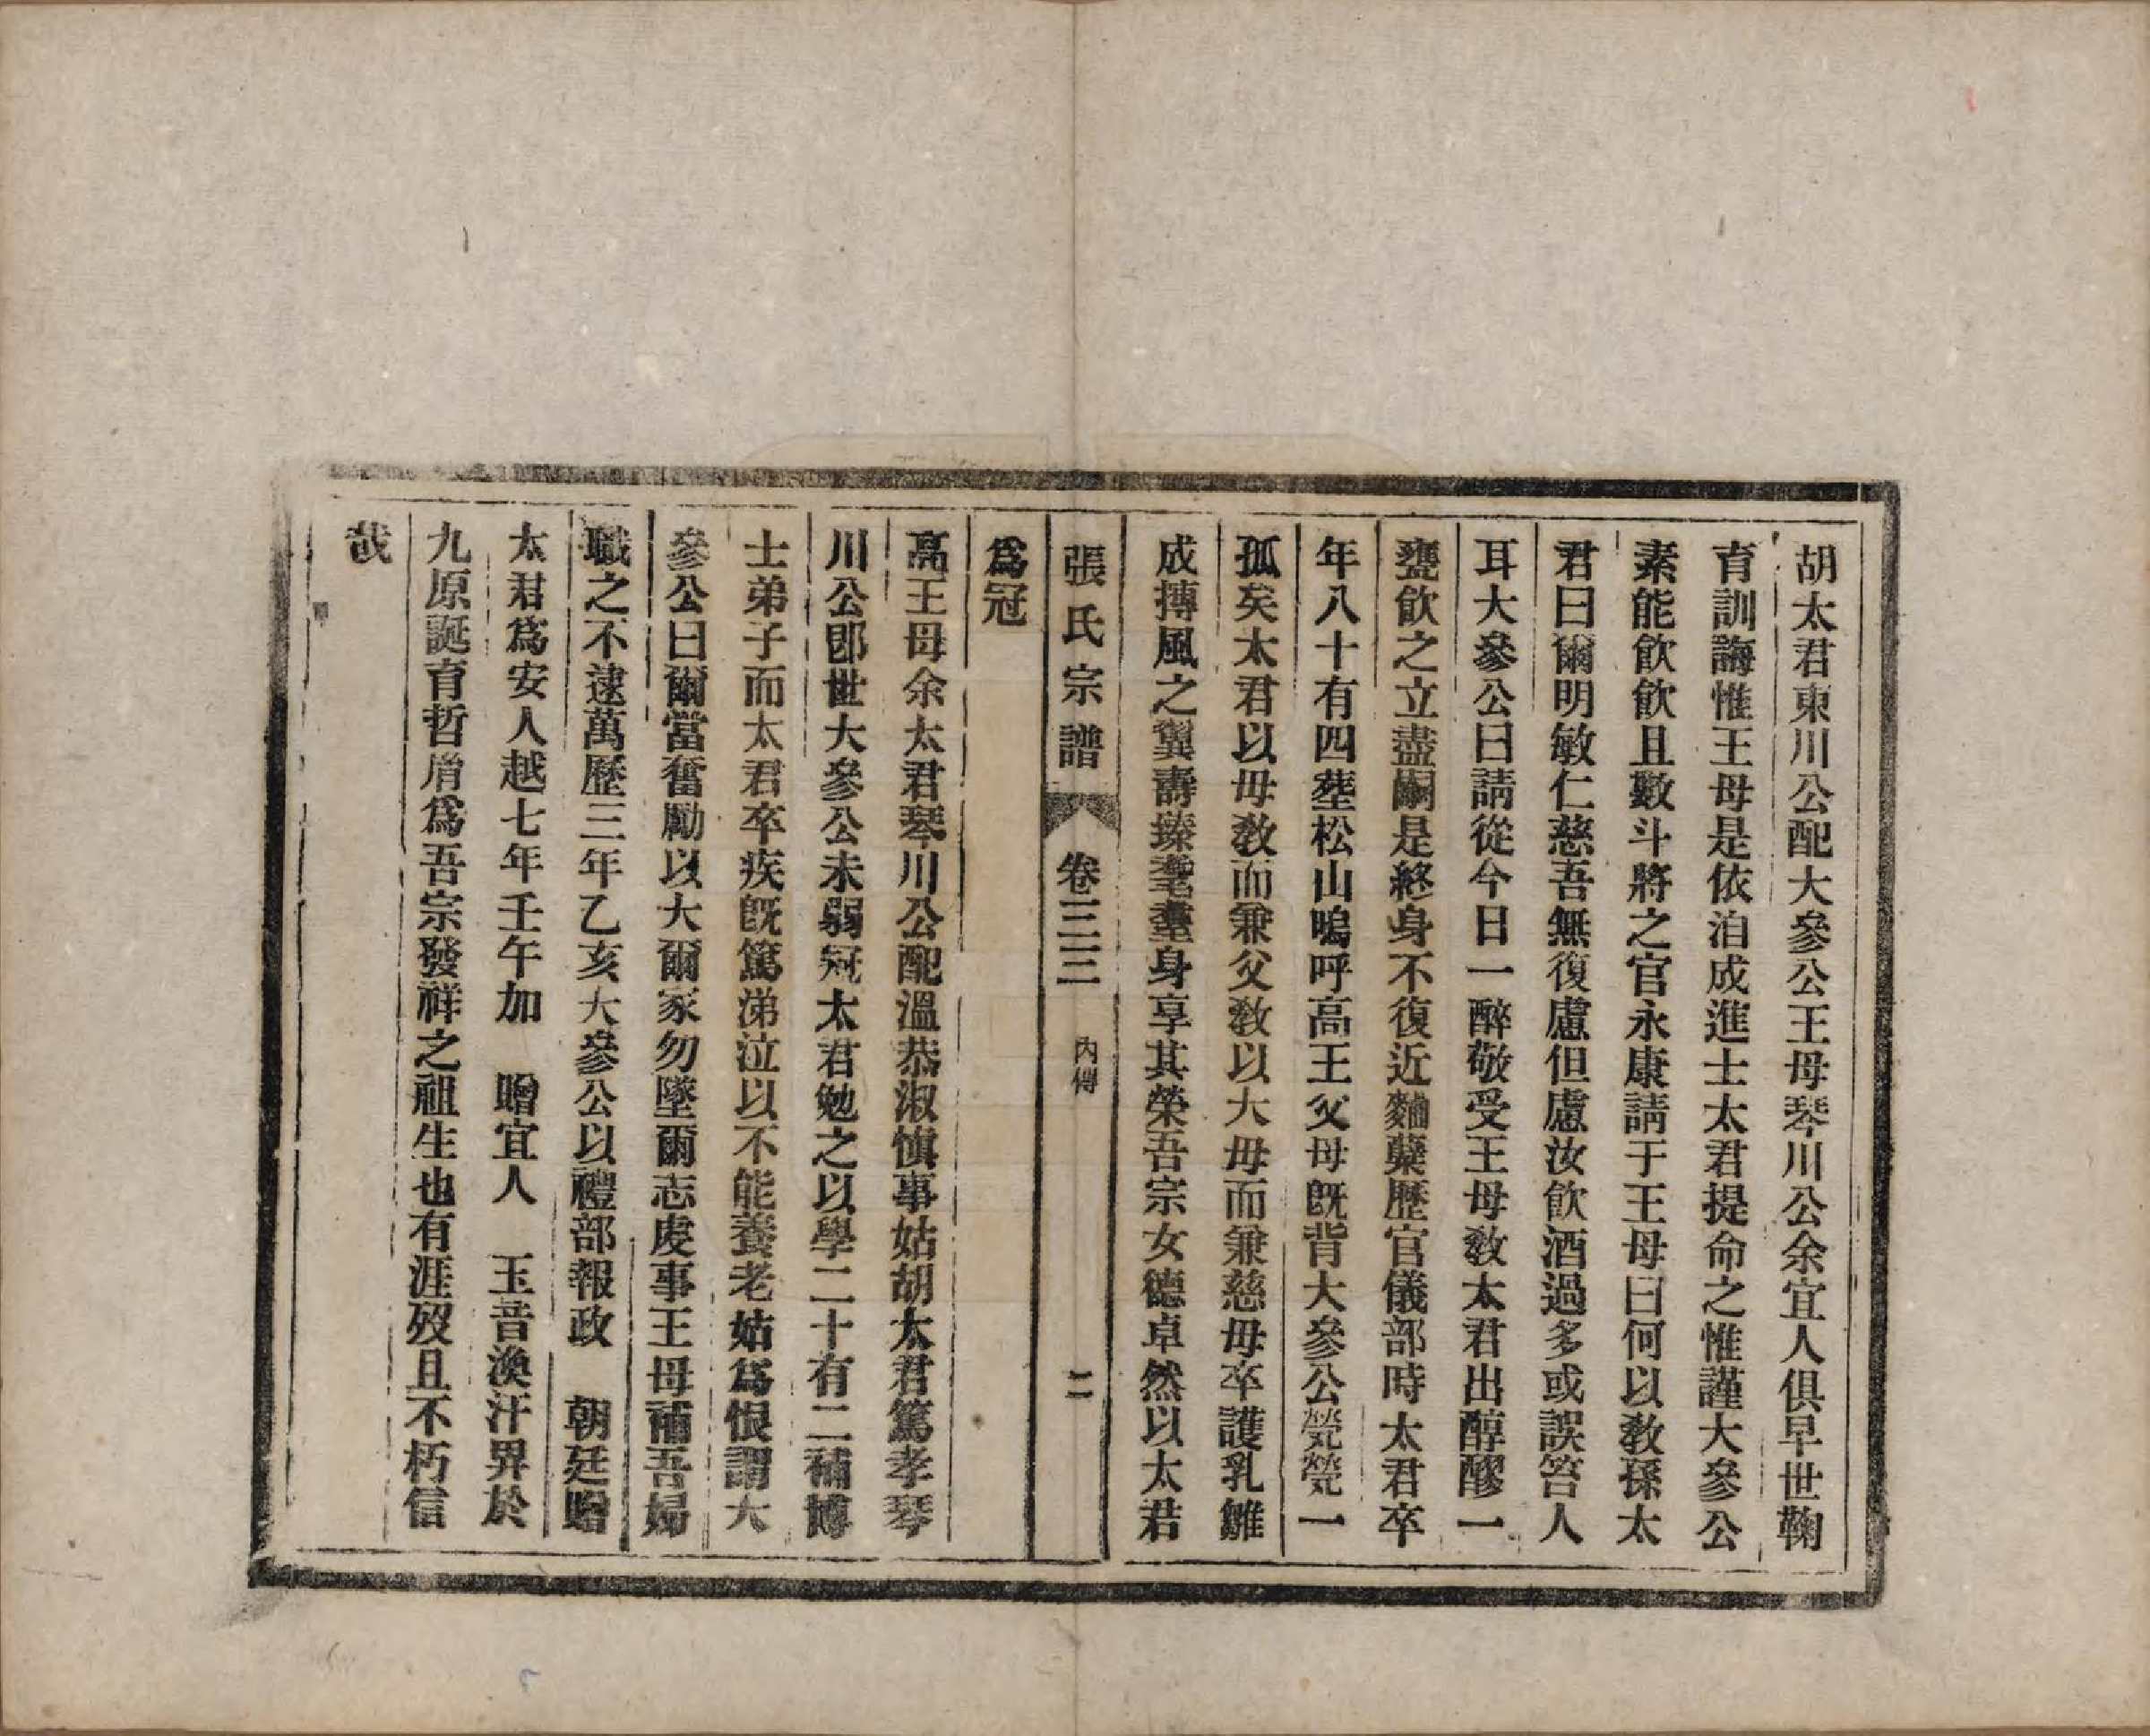 胡太君東川公配大參公王母琴川公余宜人俱早世鞠
育訓誨惟王母是依洎成進士太君提命之惟謹大參公
素能飲飲且數斗將之官永康請于王母曰何以教孫太
君曰爾明敏仁慈吾無復慮但慮汝飲酒過多或誤笞人
耳大參公曰請從今日一醉敬受王母教太君出醇醪一
甕飲之立盡嗣是終身不復近麯櫱歷官儀部時太君卒
年八十有四塟松山嗚呼高王父母旣背大參公煢煢一
孤矣太君以母教而兼父教以大母而兼慈母卒護乳雛
成摶風之翼壽臻耄耋身享其榮吾宗女德卓然以太君
爲冠
張氏宗譜
卷三三
內傳
二
高王母余太君琴川公配溫恭淑愼事姑胡太君篤孝琴
川公卽世大參公未弱冠太君勉之以學二十有二補博
士弟子而太君卒疾旣篤涕泣以不能養老姑爲恨謂大
參公曰爾當奮勵以大爾家勿墜爾志虔事王母補吾婦
職之不逮萬歷三年乙亥大參公以禮部報政 朝廷贈
太君爲安人越七年壬午加 贈宜人 玉音渙汗畀於
九原誕育哲㣧爲吾宗發祥之祖生也有涯歿且不朽信
哉